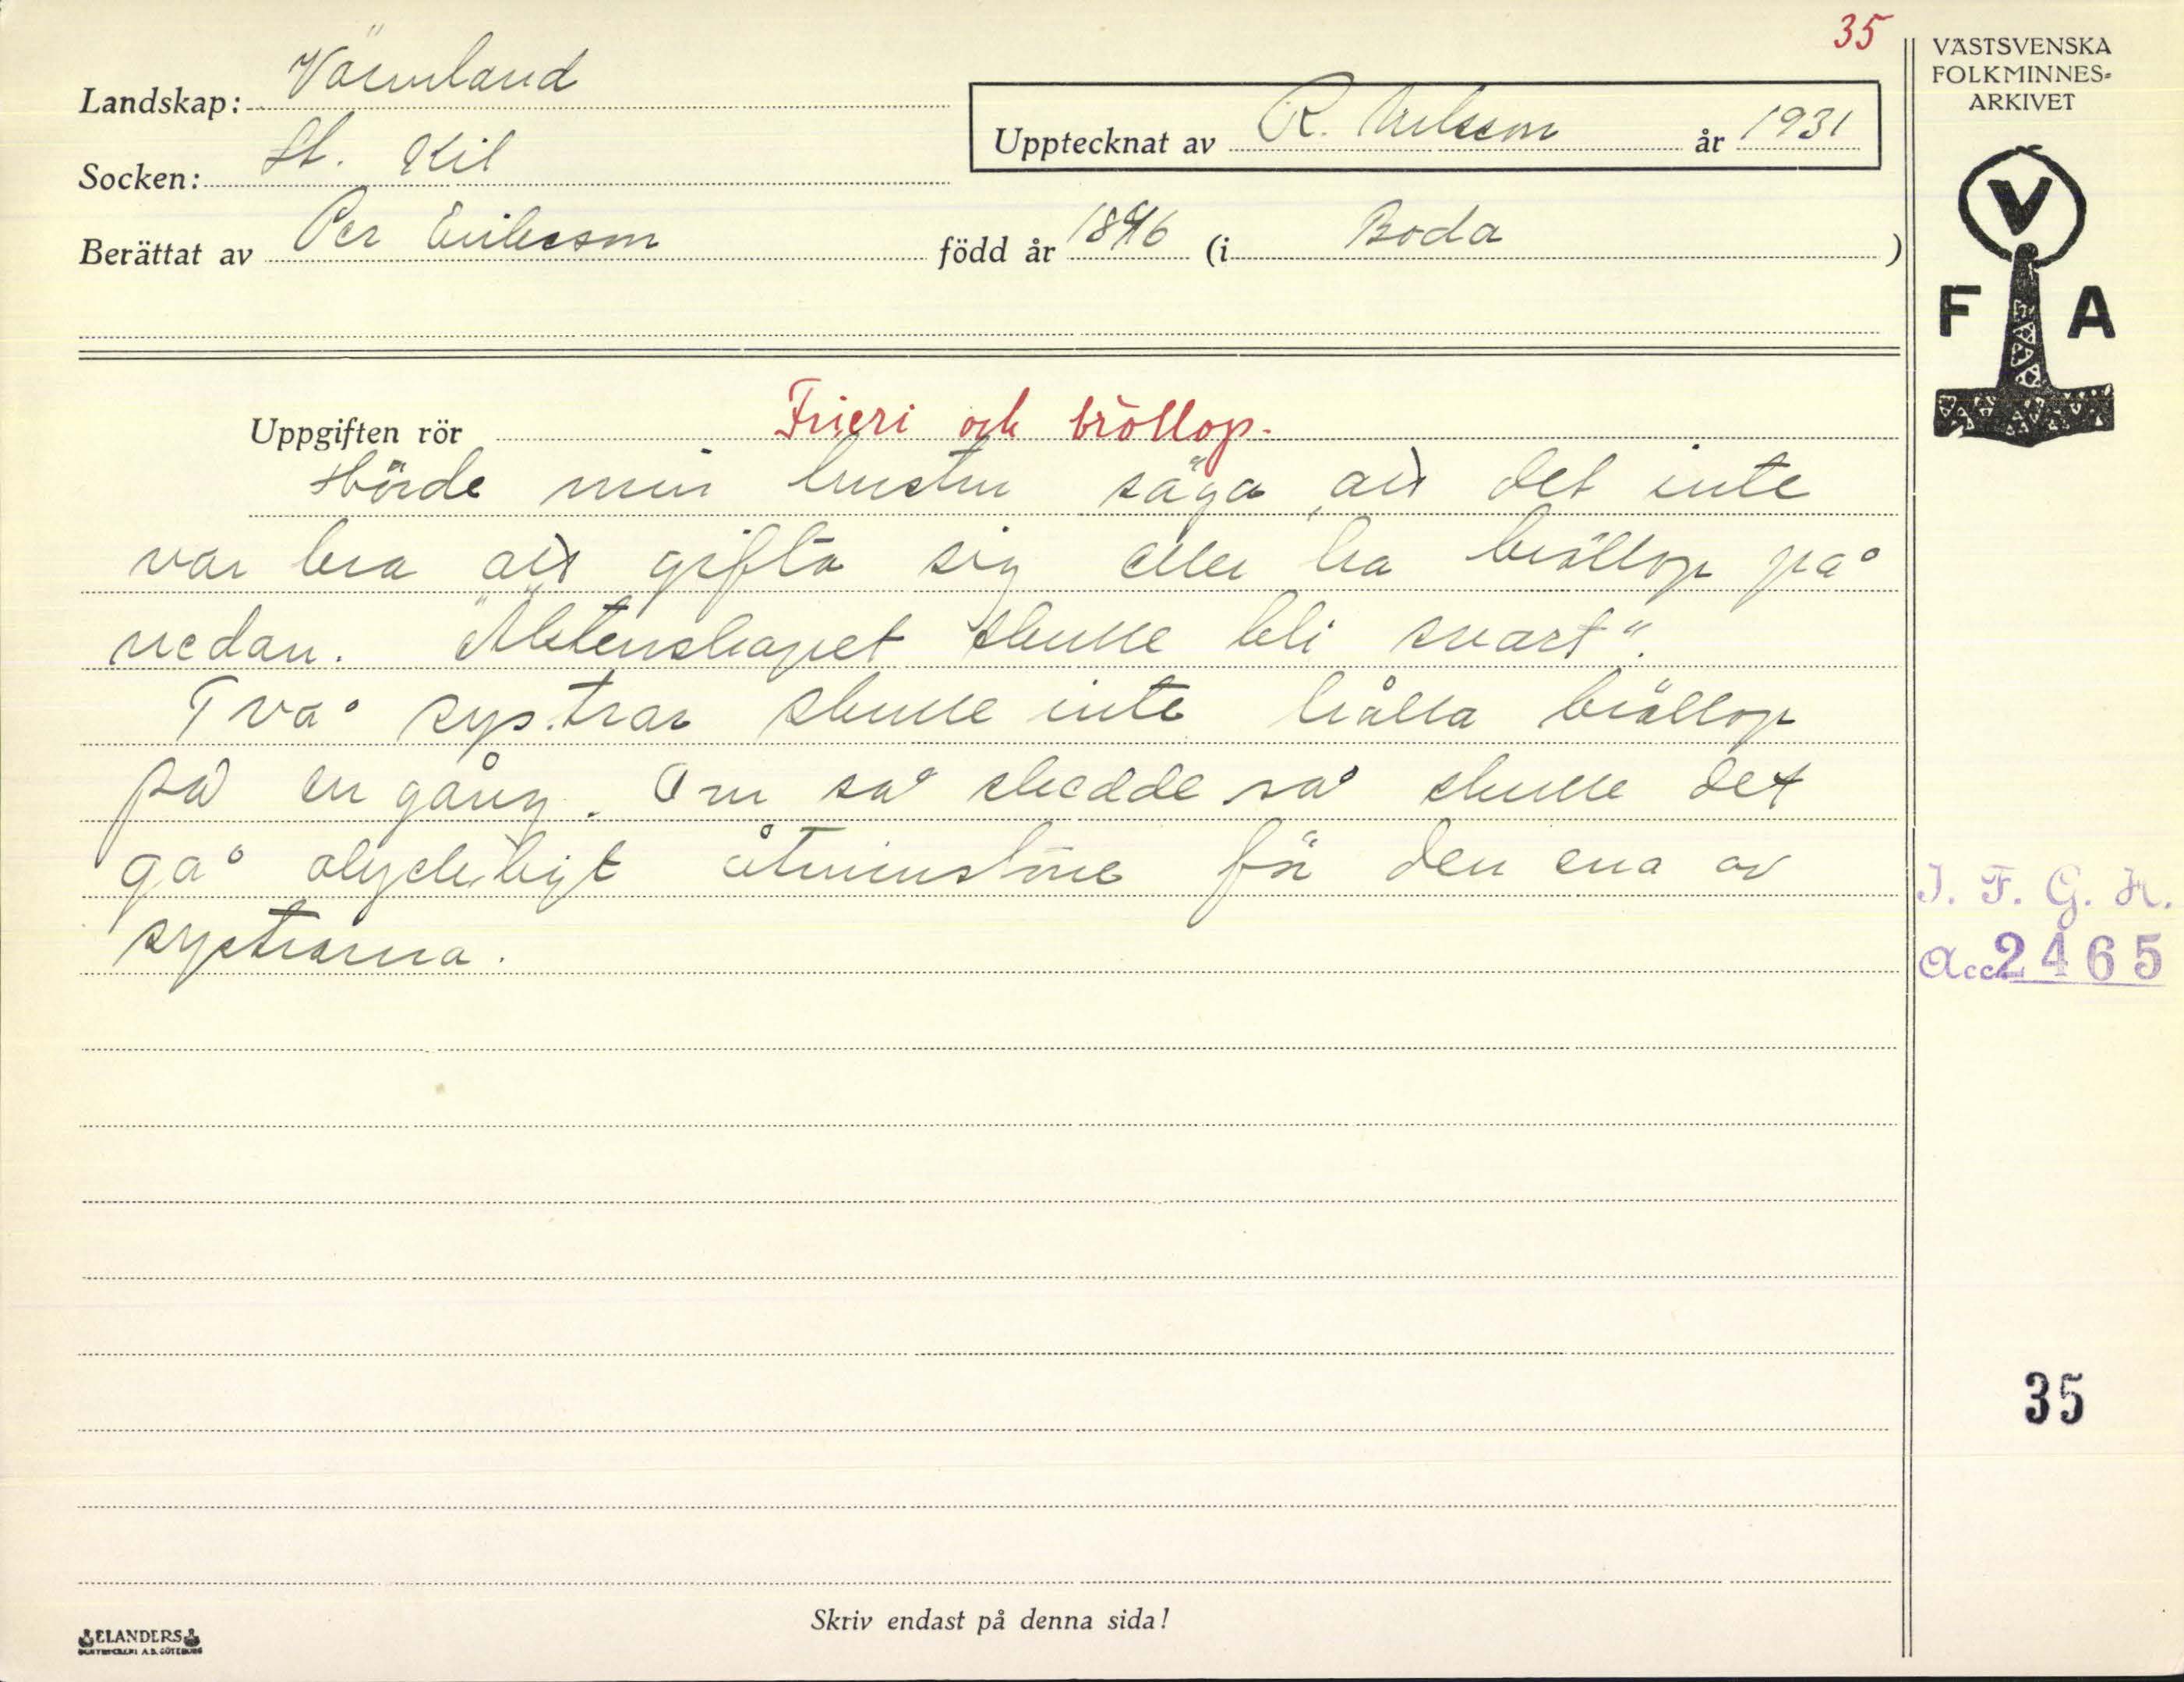 35
Landskap: Värmland
Socken: St. Kil
Upptecknat av R. Nilsson år 1931
Berättat av Per Eriksson född år 1846 (i Boda)
Uppgiften rör Frieri och bröllop.
Hörde min hustru säga, att det inte
var bra att gifta sig eller ha bröllop på
nedan. "Äktenskapet skulle bli svart".
Två systrar skulle inte hålla bröllop
på en gång. Om så skedde så skulle det
gå olyckligt åtminstone för den ena av
systrarna.
Skriv endast på denna sida!
ELANDERS
BOKTRYCKERI A.B. GÖTEBORG
VÄSTSVENSKA
FOLKMINNES-
ARKIVET
V
F A
I. F. G. H.
Acc. 2465
35